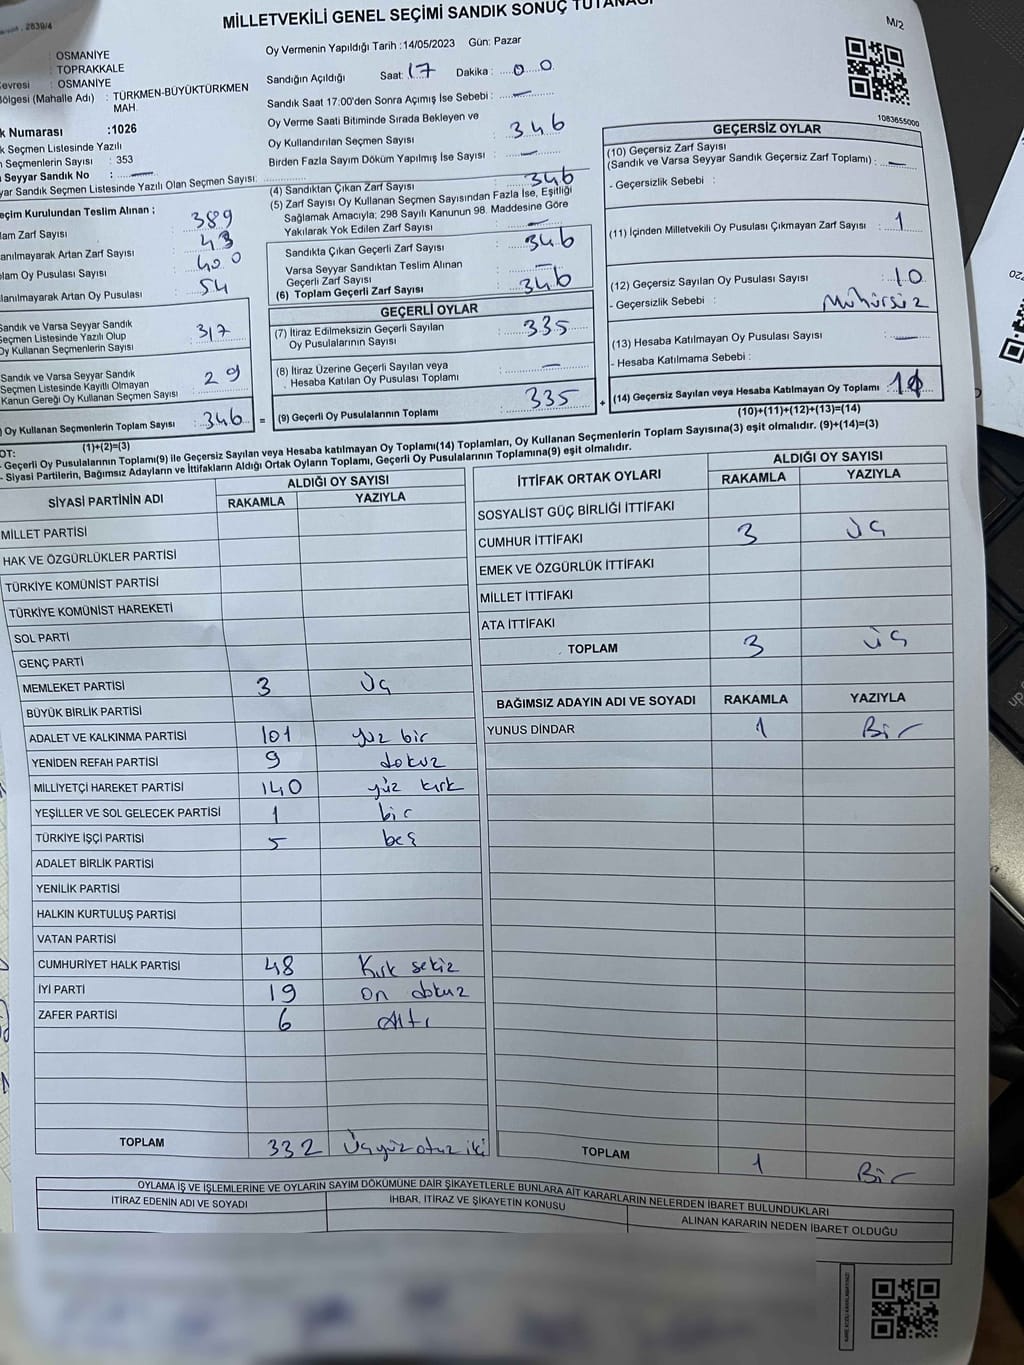 2839/4
MİLLETVEKİLİ GENEL SEÇİMİ SANDIK SONUÇ TUTANAĞI
M/2
OSMANİYE
TOPRAKKALE
OSMANİYE
Bölgesi (Mahalle Adı) : TÜRKMEN-BÜYÜKTÜRKMEN
MAH.
k Numarası :1026
k Seçmen Listesinde Yazılı
n Seçmenlerin Sayısı : 353
Seyyar Sandık No : —
yar Sandık Seçmen Listesinde Yazılı Olan Seçmen Sayısı:
eçim Kurulundan Teslim Alınan ;
lam Zarf Sayısı : 389
anılmayarak Artan Zarf Sayısı : 43
lam Oy Pusulası Sayısı : 400
lanılmayarak Artan Oy Pusulası : 54
Sandık ve Varsa Seyyar Sandık
Seçmen Listesinde Yazılı Olup
Oy Kullanan Seçmenlerin Sayısı : 317
Sandık ve Varsa Seyyar Sandık
Seçmen Listesinde Kayıtlı Olmayan
Kanun Gereği Oy Kullanan Seçmen Sayısı : 29
) Oy Kullanan Seçmenlerin Toplam Sayısı : 346 =
(1)+(2)=(3)
Oy Vermenin Yapıldığı Tarih :14/05/2023 Gün: Pazar
Sandığın Açıldığı Saat: 17 Dakika : 00
Sandık Saat 17:00'den Sonra Açımış İse Sebebi : —
Oy Verme Saati Bitiminde Sırada Bekleyen ve
Oy Kullandırılan Seçmen Sayısı : 346
Birden Fazla Sayım Döküm Yapılmış İse Sayısı : —
(4) Sandıktan Çıkan Zarf Sayısı : 346
(5) Zarf Sayısı Oy Kullanan Seçmen Sayısından Fazla İse, Eşitliği
Sağlamak Amacıyla; 298 Sayılı Kanunun 98. Maddesine Göre
Yakılarak Yok Edilen Zarf Sayısı : —
Sandıkta Çıkan Geçerli Zarf Sayısı : 346
Varsa Seyyar Sandıktan Teslim Alınan
Geçerli Zarf Sayısı : —
(6) Toplam Geçerli Zarf Sayısı : 346
GEÇERLİ OYLAR
(7) İtiraz Edilmeksizin Geçerli Sayılan
Oy Pusulalarının Sayısı : 335
(8) İtiraz Üzerine Geçerli Sayılan veya
Hesaba Katılan Oy Pusulası Toplamı : —
(9) Geçerli Oy Pusulalarının Toplamı : 335 +
1083655000
GEÇERSİZ OYLAR
(10) Geçersiz Zarf Sayısı
(Sandık ve Varsa Seyyar Sandık Geçersiz Zarf Toplamı) : —
- Geçersizlik Sebebi :
(11) İçinden Milletvekili Oy Pusulası Çıkmayan Zarf Sayısı : 1
(12) Geçersiz Sayılan Oy Pusulası Sayısı : 10
- Geçersizlik Sebebi : Mühürsüz
(13) Hesaba Katılmayan Oy Pusulası Sayısı : —
- Hesaba Katılmama Sebebi :
(14) Geçersiz Sayılan veya Hesaba Katılmayan Oy Toplamı :
(10)+(11)+(12)+(13)=(14)
OT:
- Geçerli Oy Pusulalarının Toplamı(9) ile Geçersiz Sayılan veya Hesaba katılmayan Oy Toplamı(14) Toplamları, Oy Kullanan Seçmenlerin Toplam Sayısına(3) eşit olmalıdır. (9)+(14)=(3)
- Siyasi Partilerin, Bağımsız Adayların ve İttifakların Aldığı Ortak Oyların Toplamı, Geçerli Oy Pusulalarının Toplamına(9) eşit olmalıdır.
SİYASİ PARTİNİN ADI ALDIĞI OY SAYISI
RAKAMLA YAZIYLA
MİLLET PARTİSİ
HAK VE ÖZGÜRLÜKLER PARTİSİ
TÜRKİYE KOMÜNİST PARTİSİ
TÜRKİYE KOMÜNİST HAREKETİ
SOL PARTİ
GENÇ PARTİ
MEMLEKET PARTİSİ 3 Üç
BÜYÜK BİRLİK PARTİSİ
ADALET VE KALKINMA PARTİSİ 101 yüz bir
YENİDEN REFAH PARTİSİ 9 dokuz
MİLLİYETÇİ HAREKET PARTİSİ 140 yüz kırk
YEŞİLLER VE SOL GELECEK PARTİSİ 1 bir
TÜRKİYE İŞÇİ PARTİSİ 5 beş
ADALET BİRLİK PARTİSİ
YENİLİK PARTİSİ
HALKIN KURTULUŞ PARTİSİ
VATAN PARTİSİ
CUMHURİYET HALK PARTİSİ 48 Kırk sekiz
İYİ PARTİ 19 On dokuz
ZAFER PARTİSİ 6 Altı
TOPLAM 332 Üçyüz otuz iki
İTTİFAK ORTAK OYLARI ALDIĞI OY SAYISI
RAKAMLA YAZIYLA
SOSYALİST GÜÇ BİRLİĞİ İTTİFAKI
CUMHUR İTTİFAKI 3 Üç
EMEK VE ÖZGÜRLÜK İTTİFAKI
MİLLET İTTİFAKI
ATA İTTİFAKI
TOPLAM 3 Üç
BAĞIMSIZ ADAYIN ADI VE SOYADI RAKAMLA YAZIYLA
YUNUS DİNDAR 1 Bir
TOPLAM 1 Bir
OYLAMA İŞ VE İŞLEMLERİNE VE OYLARIN SAYIM DÖKÜMÜNE DAİR ŞİKAYETLERLE BUNLARA AİT KARARLARIN NELERDEN İBARET BULUNDUKLARI
İTİRAZ EDENİN ADI VE SOYADI İHBAR, İTİRAZ VE ŞİKAYETİN KONUSU ALINAN KARARIN NEDEN İBARET OLDUĞU